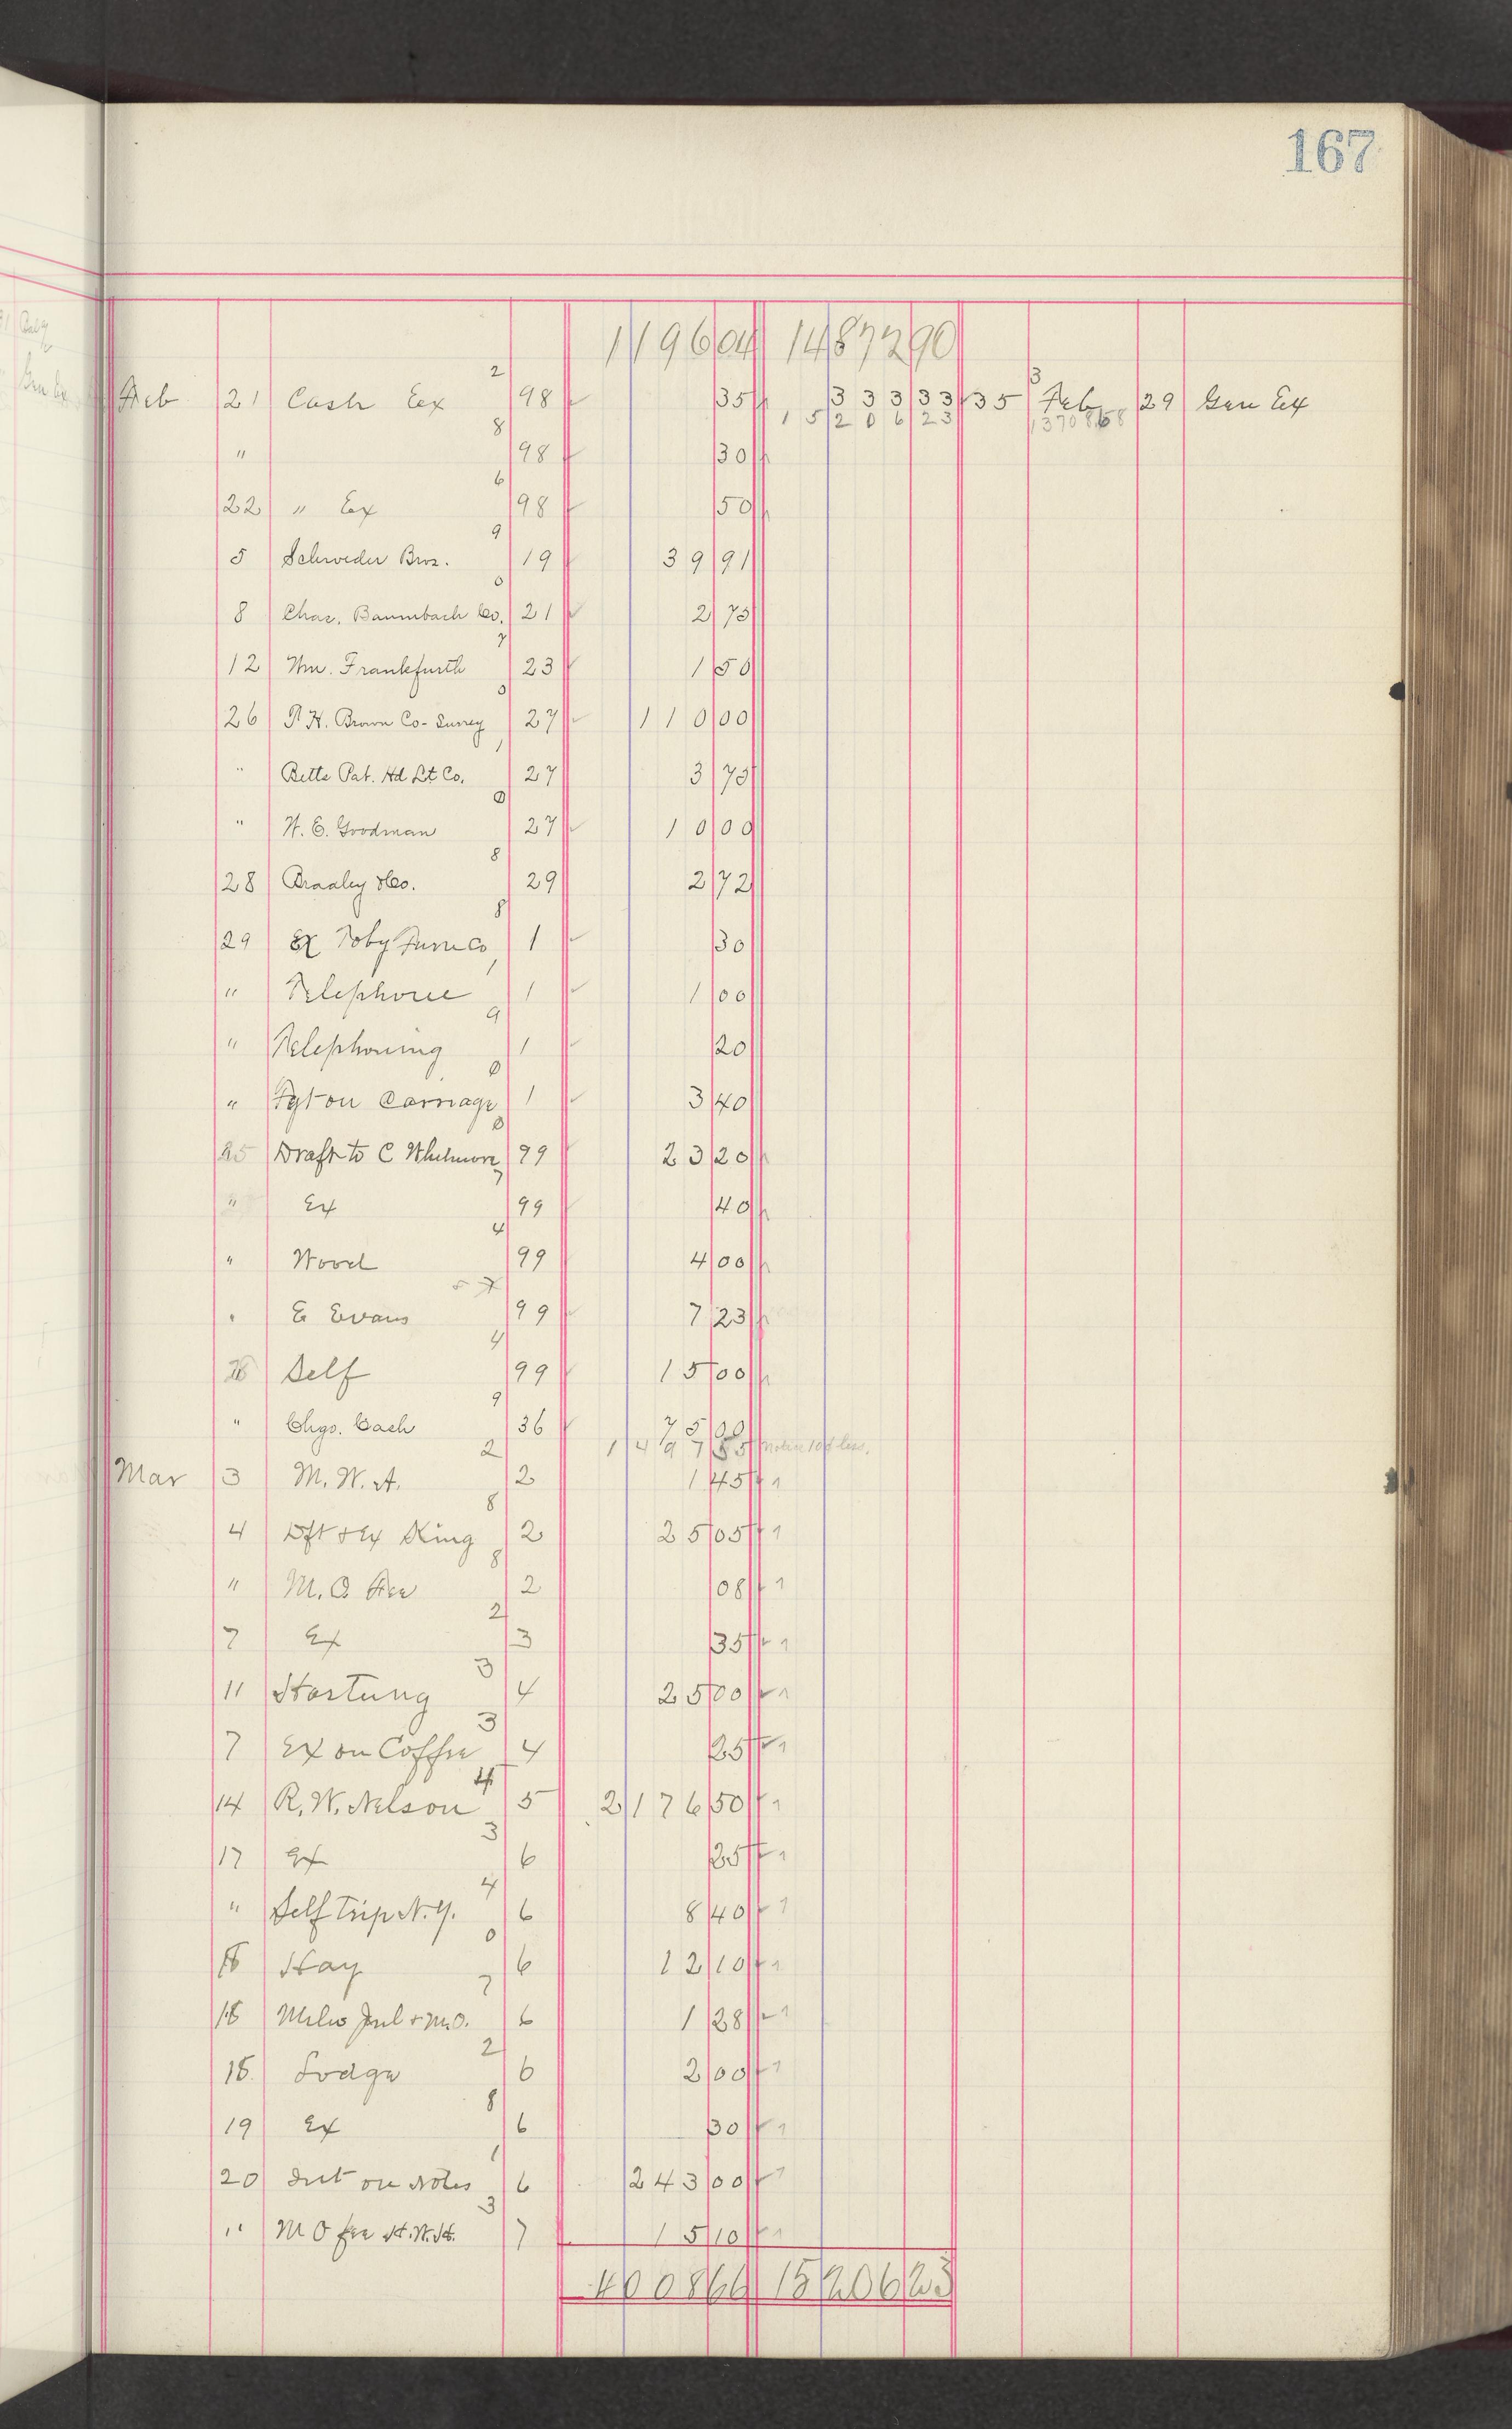 167
1196 04 14872 90
2
Feb 21 Cash Ex 98 35 333 33 35 3 Feb 29 Gen Ex
8 15206 23 13708.68
" 98 30
6
22 " Ex 98 50
9
5 Schroeder Bros. 19 39 91
0
8 Chas. Baumbach Co. 21 2 75
7
12 Wm. Frankfurth 23 1 50
26 P. H. Brown Co - Surrey 27 110 00
1
" Betts Pat. Hd Lt Co. 27 3 75
" W. E. Goodman 27 10 00
8
28 Bradley & Co. 29 2 72
8
29 Ex Toby Furn Co 1 30
1
" Telephone 1 1 00
9
" Telephoning 1 20
0
" Fgt on Carriage 1 3 40
25 Draft to C Whitmore 99 23 20
" Ex 99 40
4
" Wood 99 4 00
7
" E Evans 99 7 23
4
28 Self 99 15 00
9
" Chgs. Cash 36 25 00
2 149 7
Mar 3 M. W. A. 2 1 45
8
4 Dft & Ex King 2 25 05
8
" M. O. Fee 2 08
2
7 Ex 3 35
3
11 Hartung 4 25 00
3
7 Ex on Coffee 4 25
4
14 R. W. Nelson 5 2176 50
3
17 Ex 6 25
4
" Self Trip N. Y. 6 8 40
0
18 Hay 6 12 10
7
18 Milw Jnl & M.O. 6 1 28
2
18 Lodge 6 2 00
8
19 Ex 6 30
1
20 Int on Notes 6 243 00
3
" M O fee H. W. H. 7 15 10
4008 66 15206 23